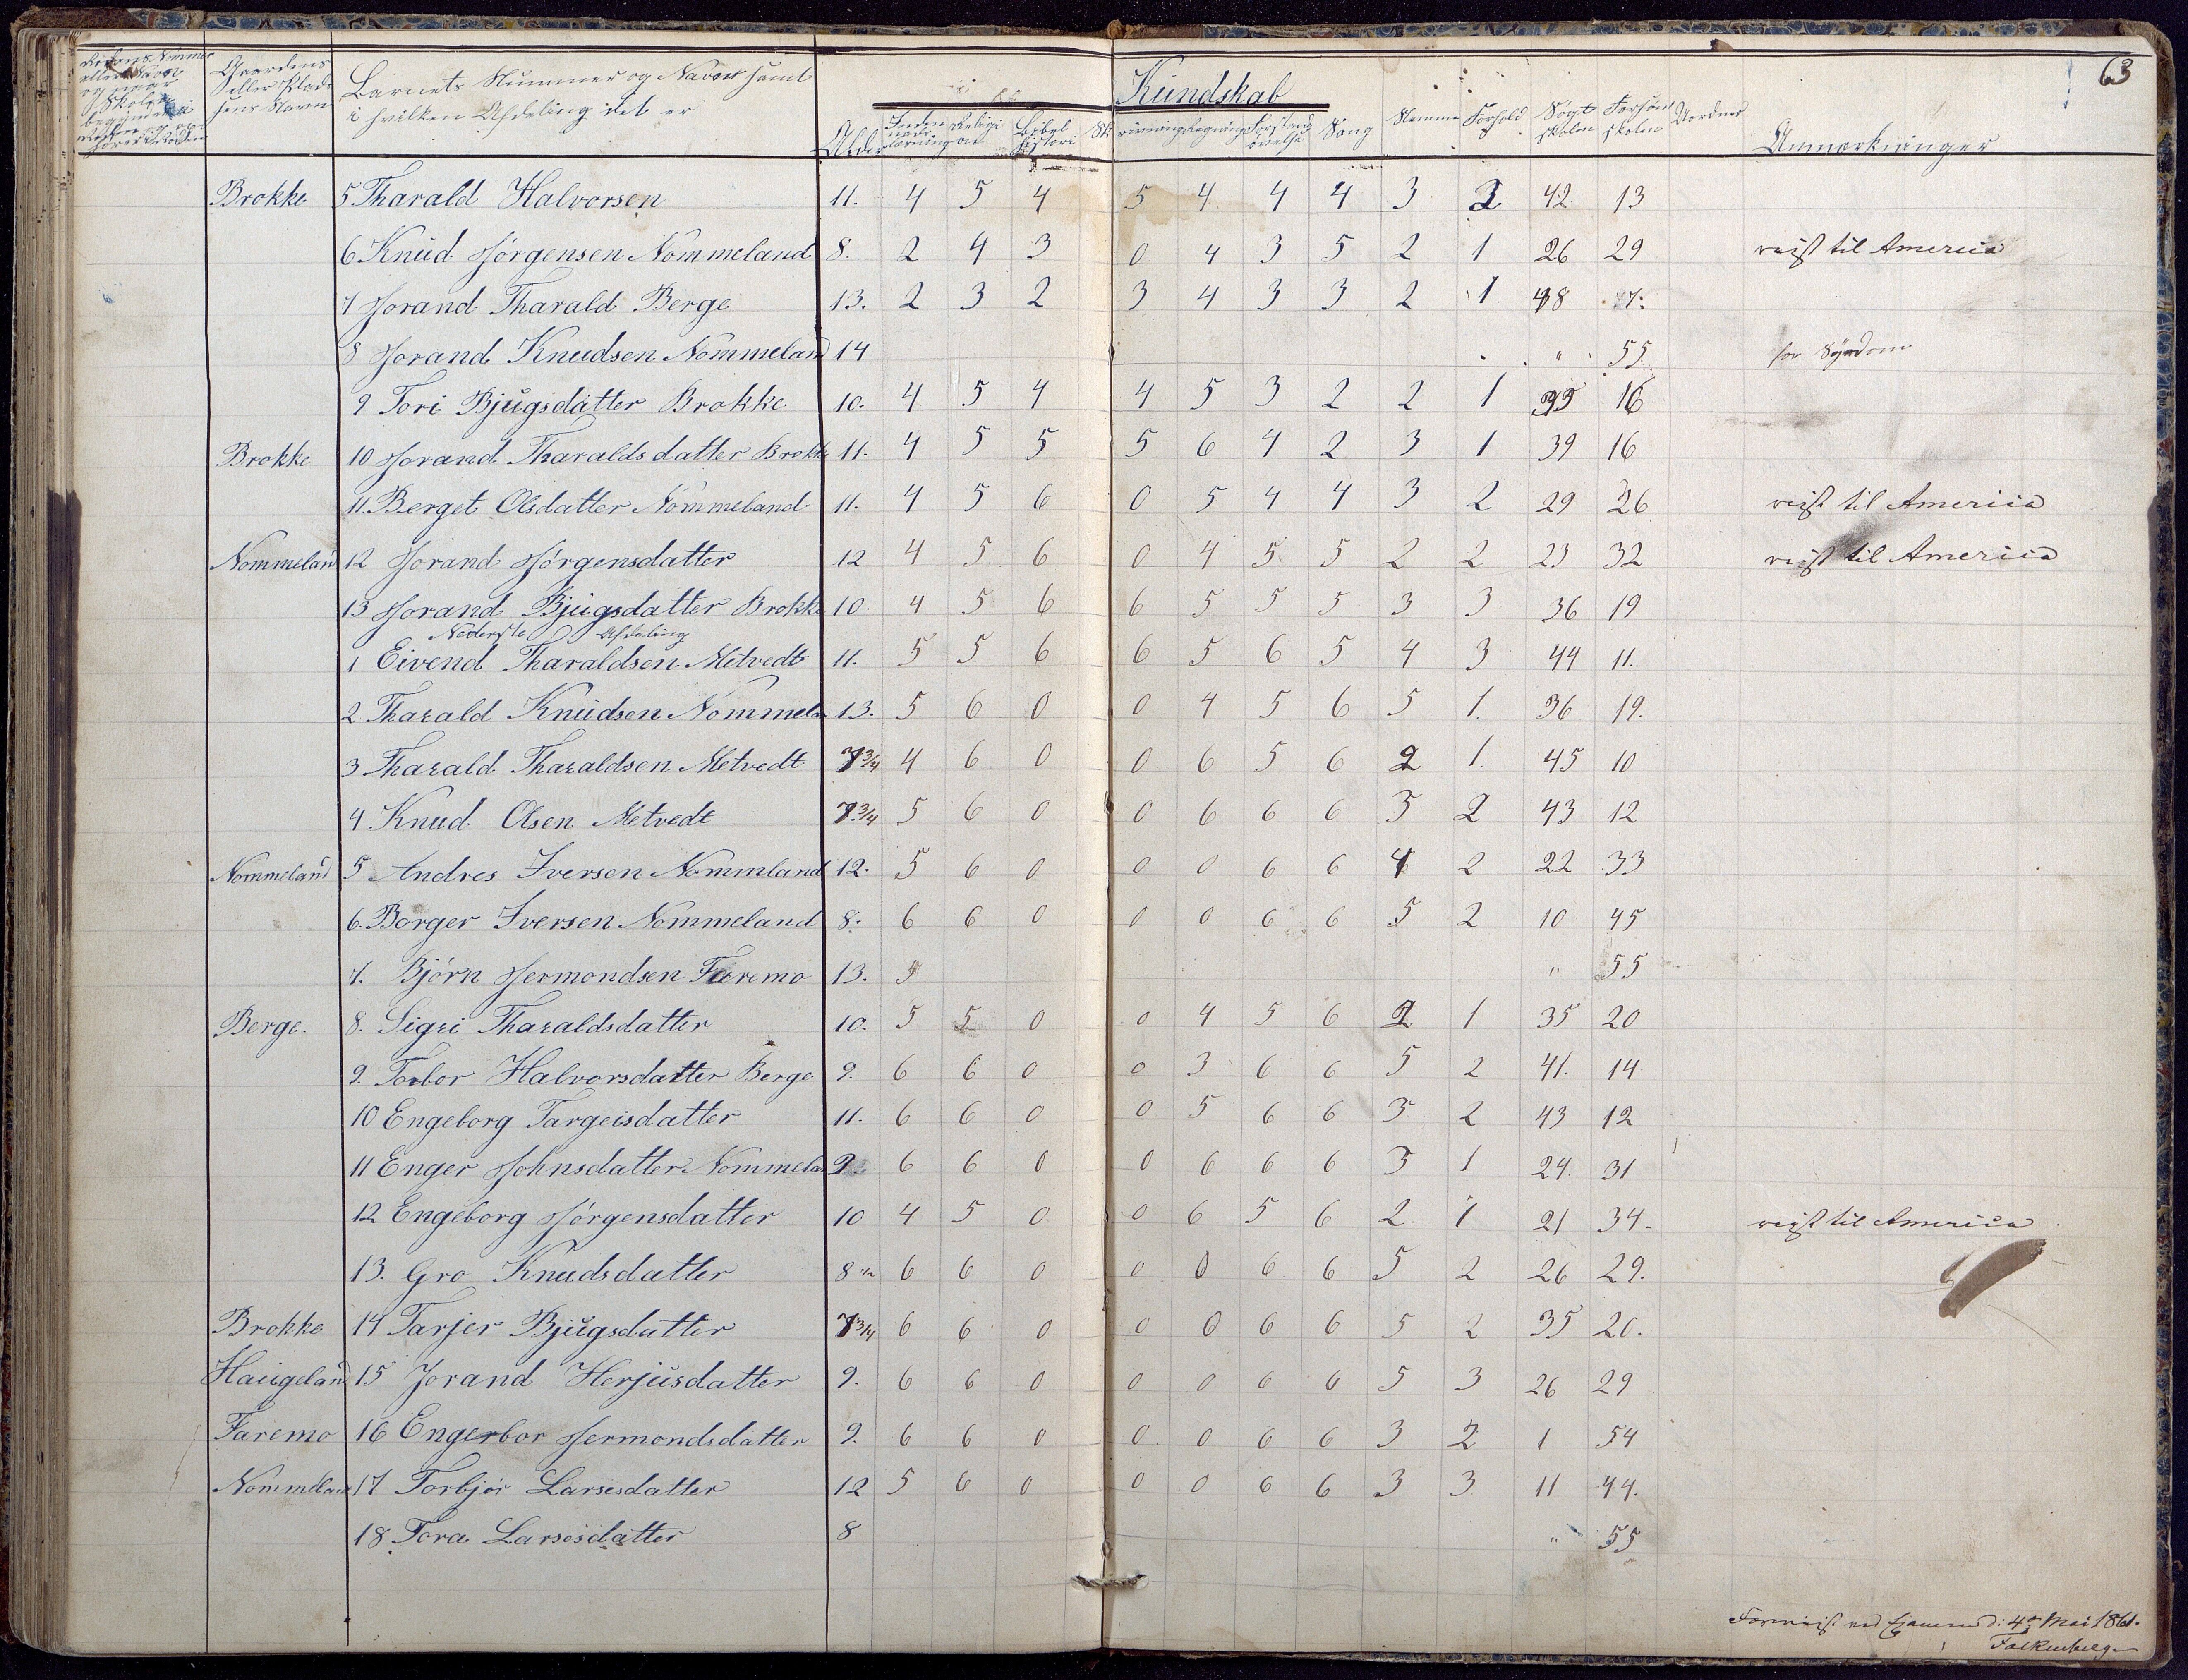 63
Gaardens eller Pladsens Navn
Barnets Nummer og Navn samt i hvilken Afdeling det er
Alder
Religion
Bibelhistori
Kundskab
Sang
Stemme
Forhold
Søgt skolen
Forsømt skolen
Uordner
Anmærkninger
Brokke 5 Tharald Halvorsen 11. 4 5 4 5 4 4 4 3 2 42 13
6 Knud Jørgensen Nommeland 8. 2 4 3 0 4 3 5 2 1 26 29 reist til America
7 Jorand Tharald Berge 13. 2 3 2 3 4 3 3 2 1 48 7.
8 Jorand Knudsen Nommeland 14 " 55 for Sygdom
9 Tori Bjugsdatter Brokke 10. 4 5 4 4 5 3 2 2 1 39 16
Brokke 10 Jorand Tharaldsdatter Brokke 11. 4 5 5 5 6 4 2 3 1 39 16
11. Berget Olsdatter Nommeland 11. 4 5 6 0 5 4 4 3 2 29 26 reist til America
Nommeland 12 Jorand Jørgensdatter 12 4 5 6 0 4 5 5 2 2 23 32 reist til America
13 Jorand Bjugsdatter Brokke 10. 4 5 6 6 5 5 5 3 3 36 19
Nederste Afdeling
1 Eivend Tharaldsen Metvedt 11. 5 5 6 6 5 6 5 4 3 44 11.
2 Tharald Knudsen Nommela 13. 5 6 0 0 4 5 6 5 1. 36 19.
3 Tharald Tharaldsen Metvedt 7 3/4 4 6 0 0 6 5 6 2 1. 45 10
4 Knud Olsen Metvedt 7 3/4 5 6 0 0 6 6 6 3 2 43 12
Nommeland 5 Andres Iversen Nommland 12. 5 6 0 0 0 6 6 4 2 22 33
6. Borger Iversen Nommeland 8. 6 6 0 0 0 6 6 5 2 10 45
7. Bjørn Hermondsen Faremo 13. 5 " 55
Berge. 8. Sigri Tharaldsdatter 10. 5 5 0 0 4 5 6 2 1 35 20
9. Torbor Halvorsdatter Berge 9. 6 6 0 0 3 6 6 5 2 41. 14
10 Engeborg Targeisdatter 11. 6 6 0 0 5 6 6 3 2 43 12
11 Enger Johnsdatter Nommela 9 6 6 0 0 6 6 6 3 1 24. 31
12 Engeborg Jørgensdatter 10 4 5 0 0 6 5 6 2 1 21 34. reist til America
13. Gro Knudsdatter 8 1/2 6 6 0 0 0 6 6 5 2 26 29.
Brokke 14 Tarjer Bjugsdatter 7 3/4 6 6 0 0 0 6 6 5 2 35 20.
Haugeland 15 Jorand Herjusdatter 9. 6 6 0 0 0 6 6 5 3 26 29
Faremo 16 Engerbor Hermondsdatter 9. 6 6 0 0 0 6 6 3 2 1 54
Nommeland 17 Torbjør Larsesdatter 12 5 6 0 0 0 6 6 3 3 11 44.
18 Tora Larsesdatter 8 " 55
Foreviist ved Examen d: 4de Mai 1861.
Falkenberg